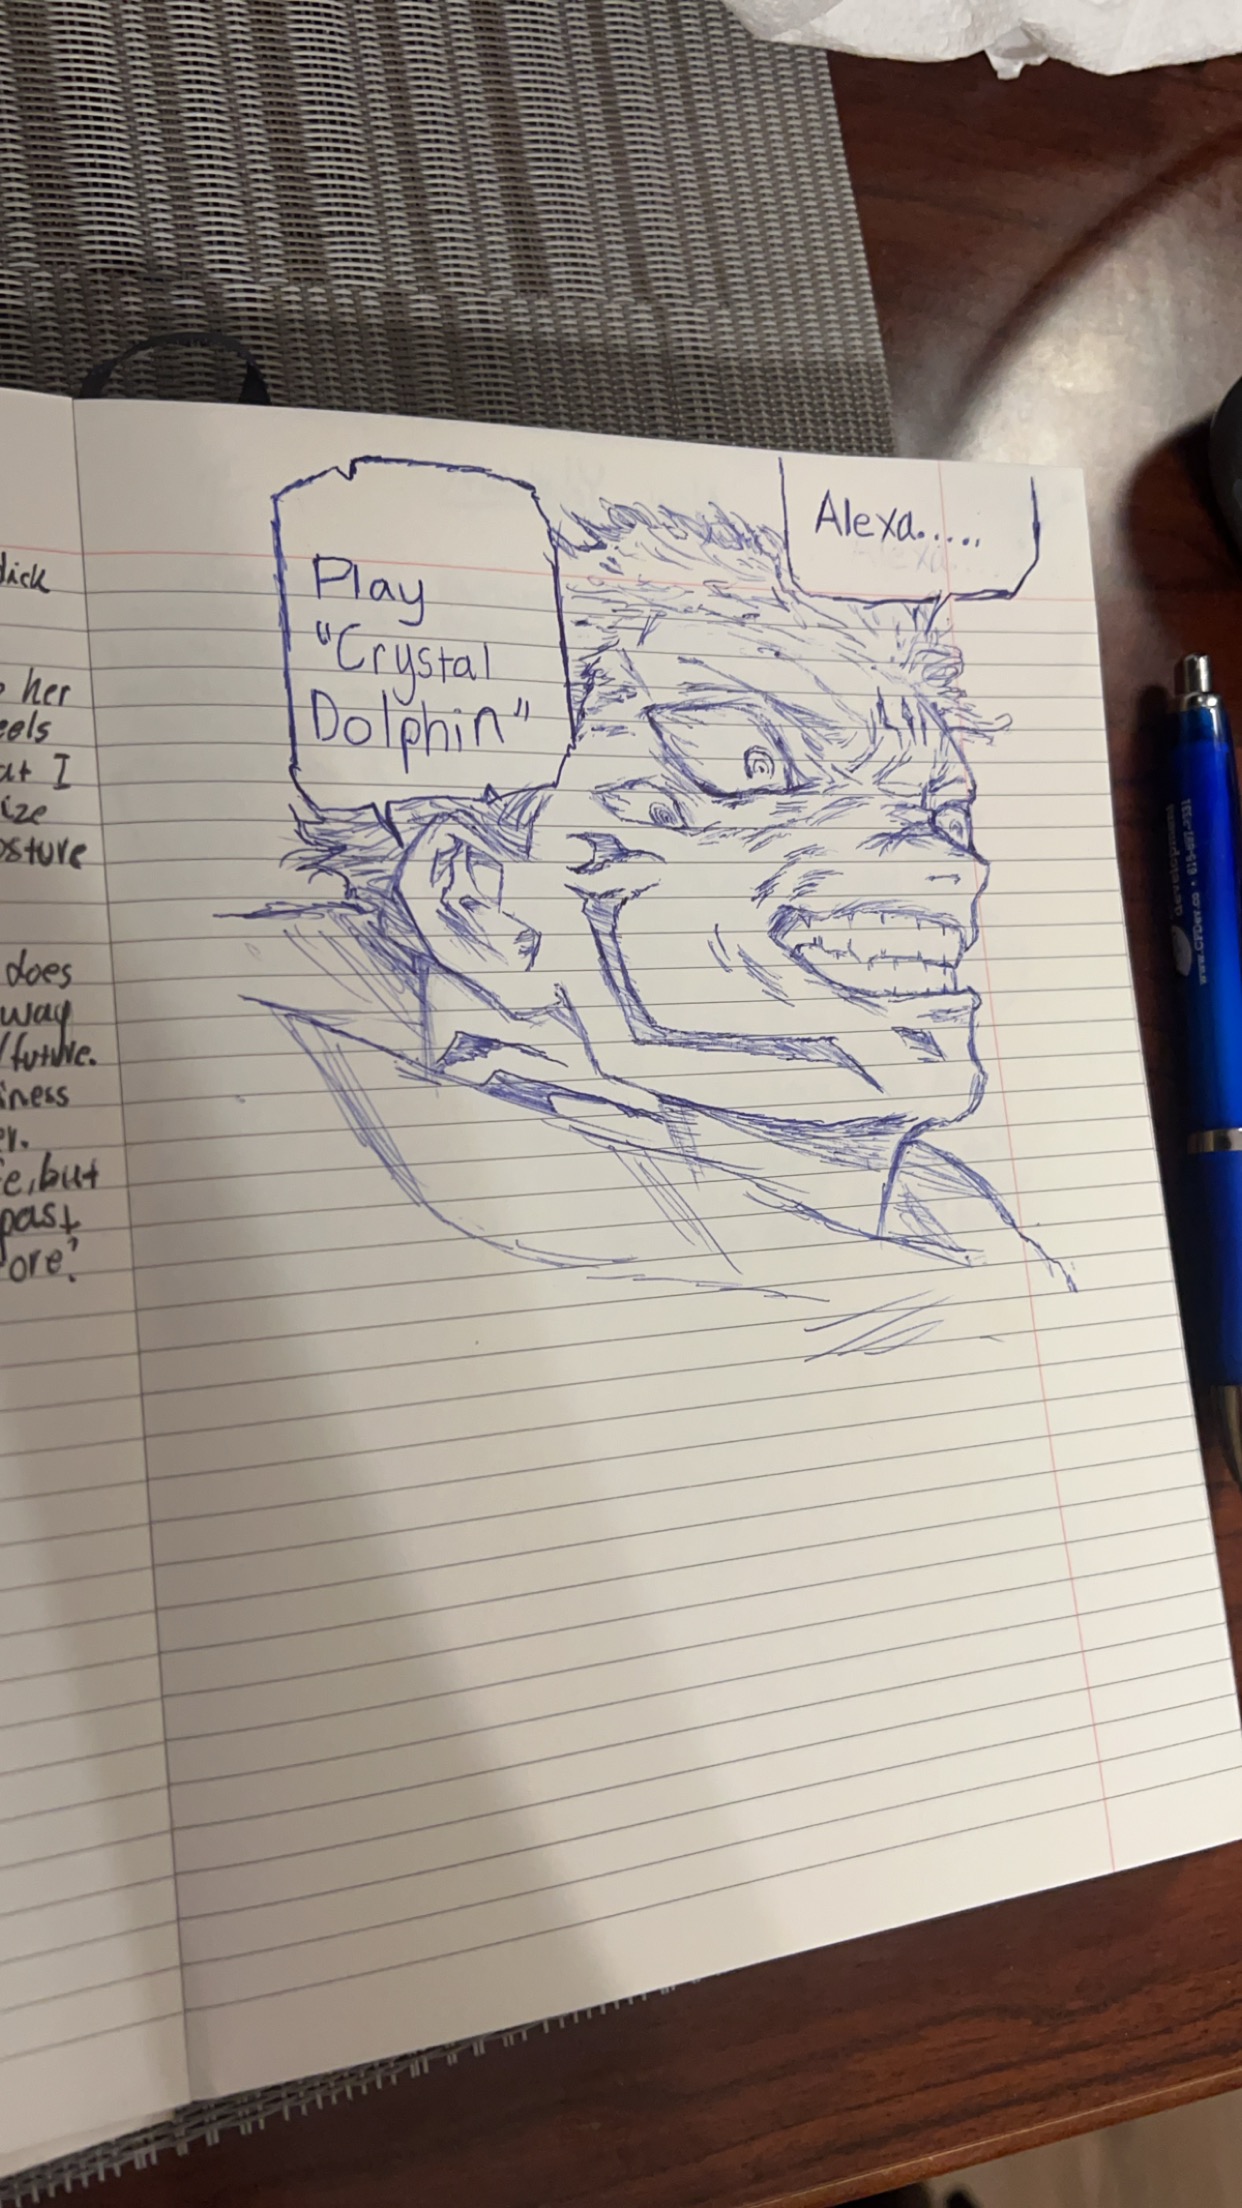 her
eels
at I
ize
osture
does
way
/future.
iness
er.
e, but
past
ore?
Alexa.....
Play
"Crystal
Dolphin"
development
www.CFDev.co